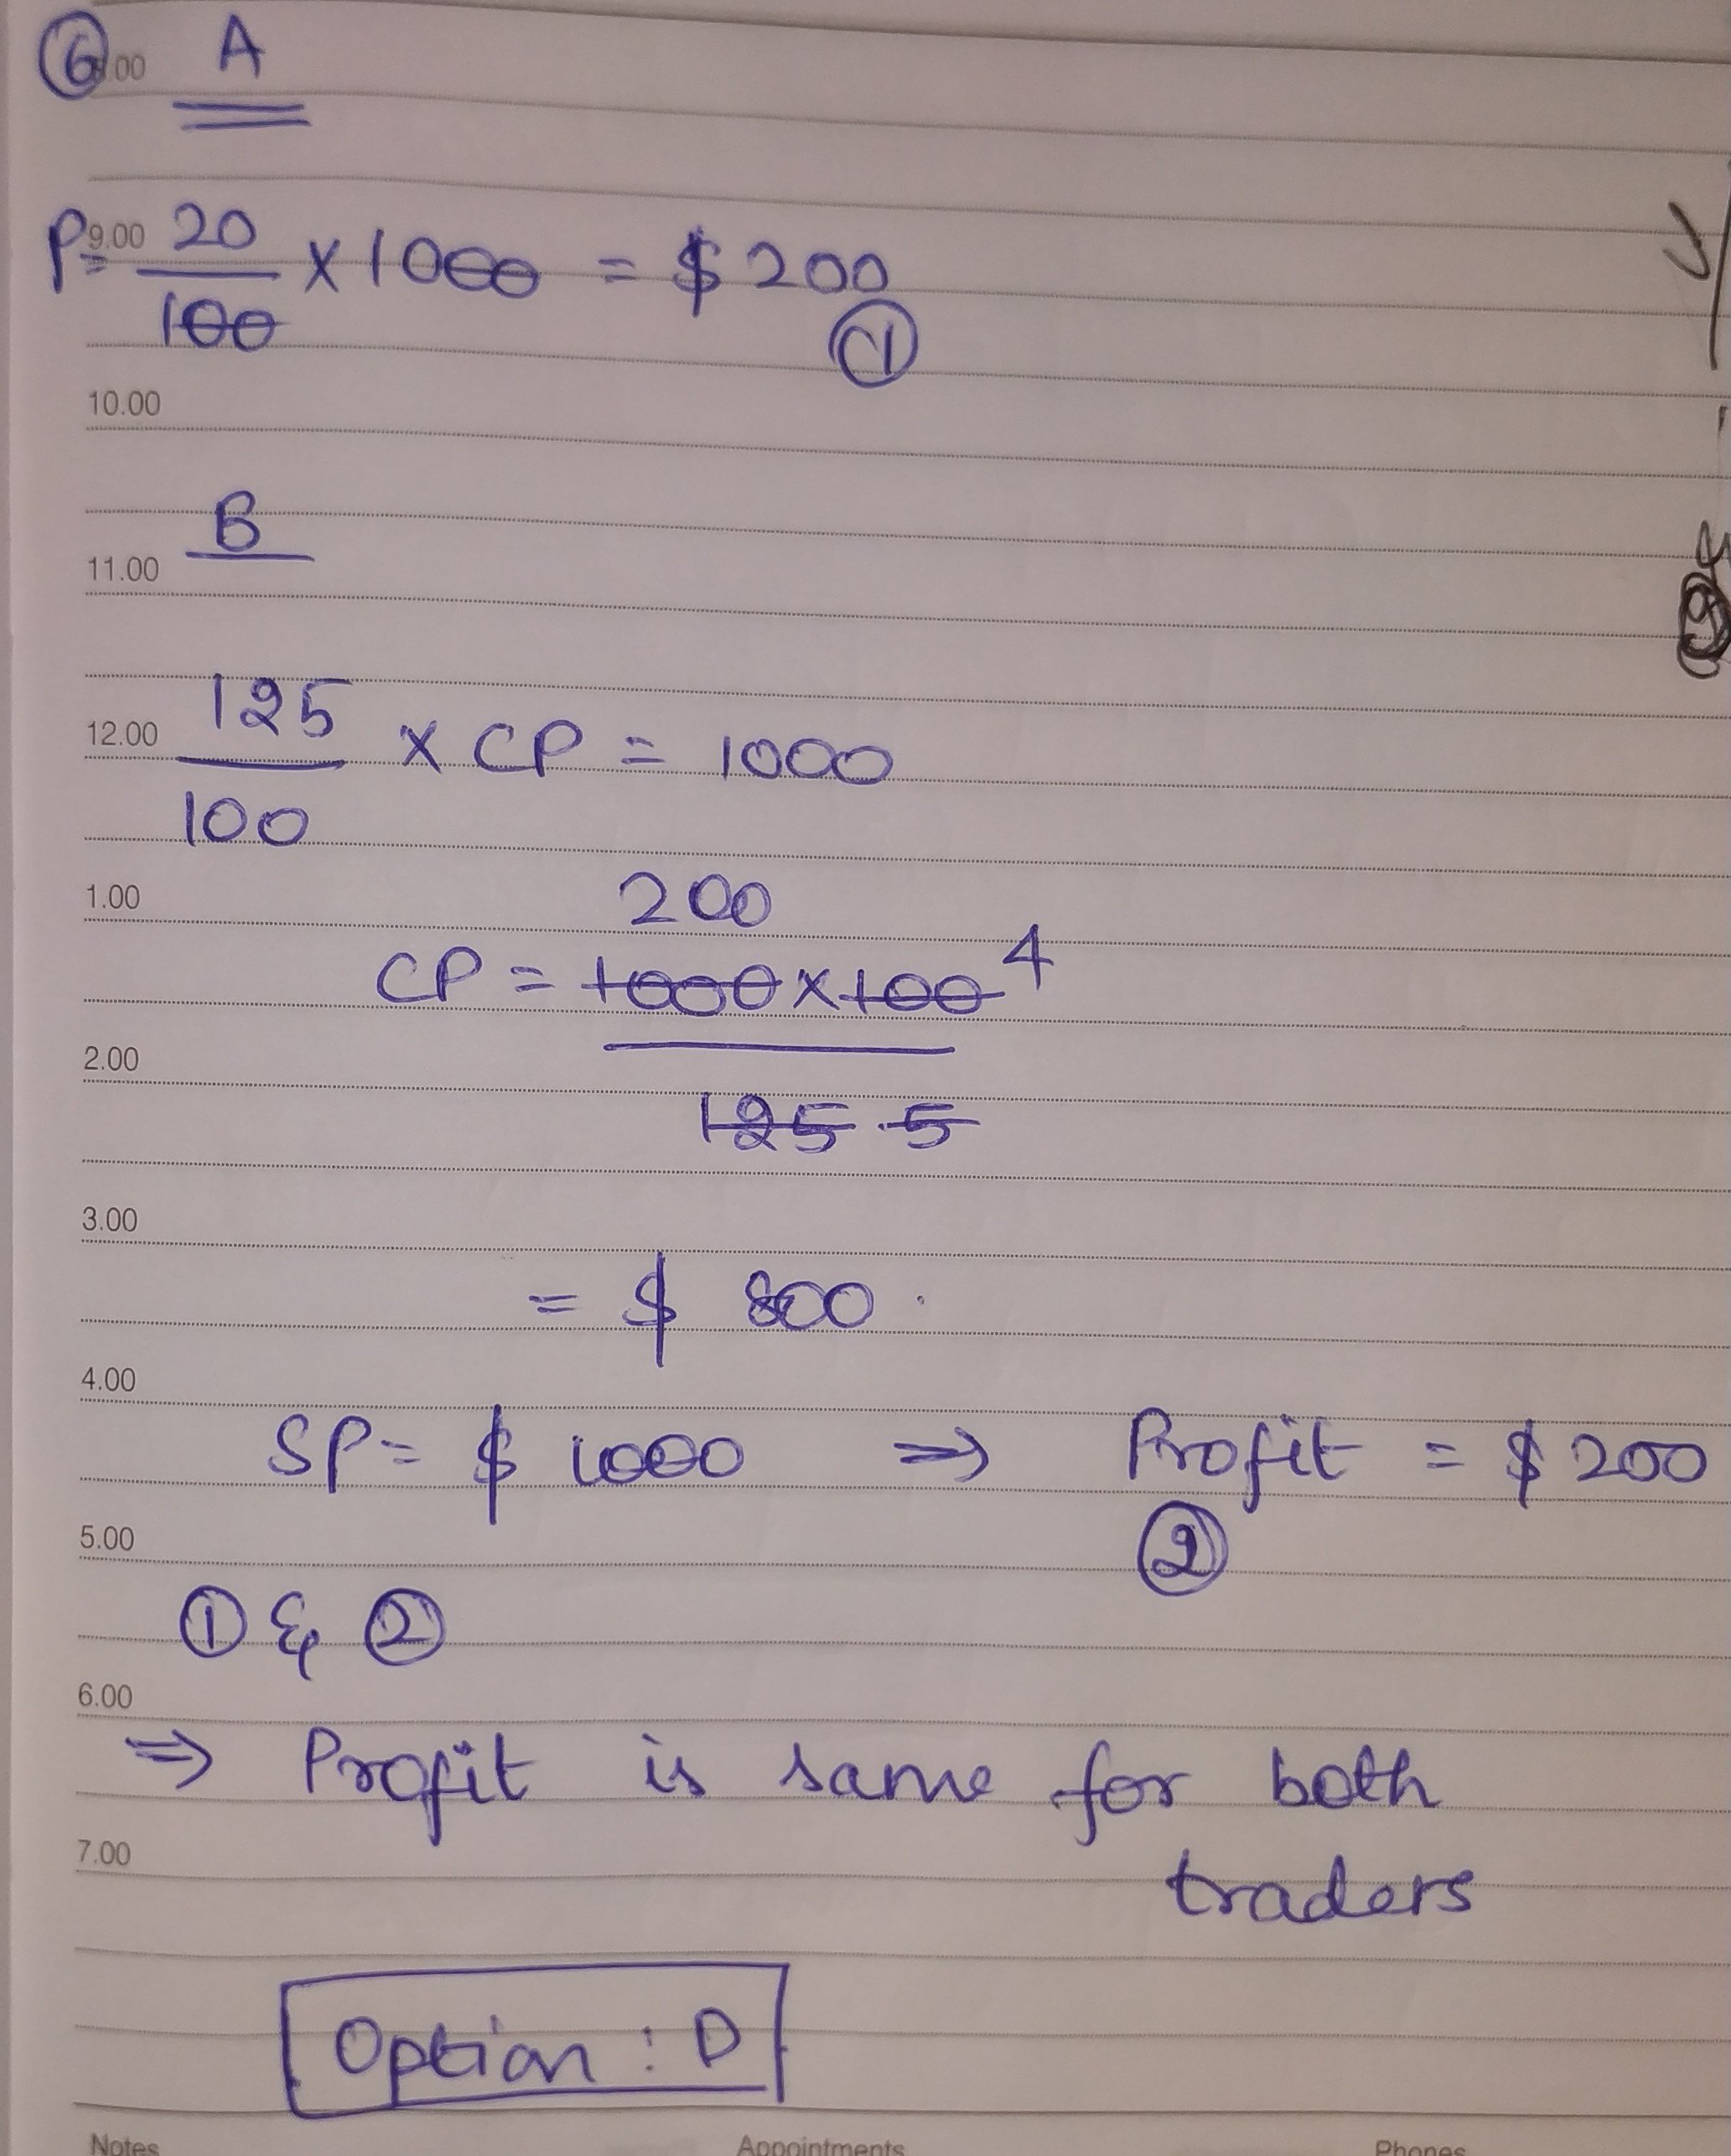 6 8.00 A
P= 9.00 20/100 x 1000 = $ 200
①
10.00
B
11.00
12.00 125/100 x CP = 1000
1.00 200
CP = 1000 x 100 4
2.00
125 5
3.00
= $ 800
4.00
SP = $ 1000 ⇒ Profit = $ 200
②
5.00
① & ②
6.00
⇒ Profit is same for both
7.00
traders
Option : D
Notes Appointments Phones